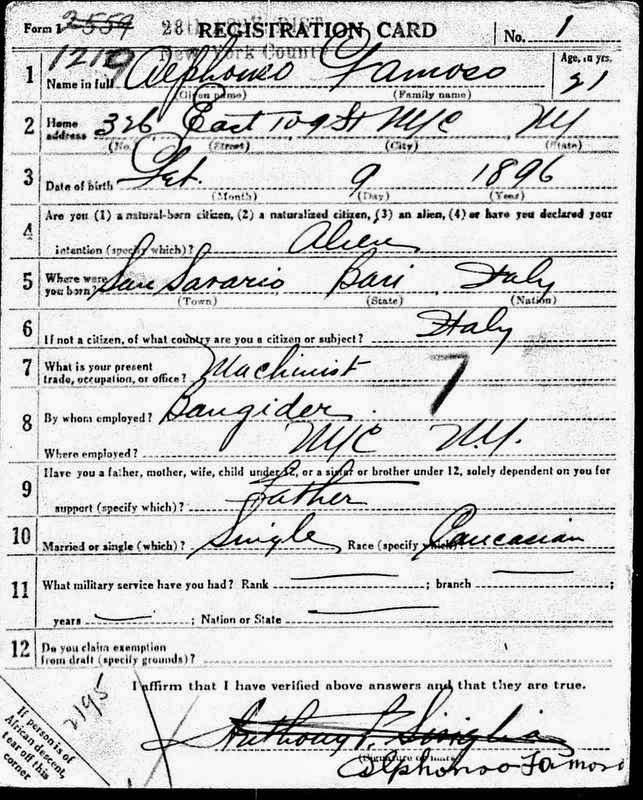 Form 1 2559 28th REGISTRATION CARD No. 1
1210 New York County
1 Name in full Alphonso Famoso Age, in yrs. 21
(Given name) (Family name)
2 Home address 326 East 109 St NYC NY
(No.) (Street) (City) (State)
3 Date of birth 9 1896
(Month) (Day) (Year)
Are you (1) a natural-born citizen, (2) a naturalized citizen, (3) an alien, (4) or have you declared your
4 intention (specify which)? Alien
5 Where were you born? San Savario Bari Italy
(Town) (State) (Nation)
6 If not a citizen, of what country are you a citizen or subject? Italy
7 What is your present trade, occupation, or office? Machinist 7
8 By whom employed?
Where employed? NYC N.Y.
Have you a father, mother, wife, child under 12, or a sister or brother under 12, solely dependent on you for
9 support (specify which)? Father
10 Married or single (which)? Single Race (specify which)? Caucasian
11 What military service have you had? Rank ; branch ;
years ; Nation or State
12 Do you claim exemption
from draft (specify grounds)?
I affirm that I have verified above answers and that they are true.
2195
If person is of
African descent,
tear off this
corner.
Anthony P.
(Signature or mark)
Alphonso Famoso